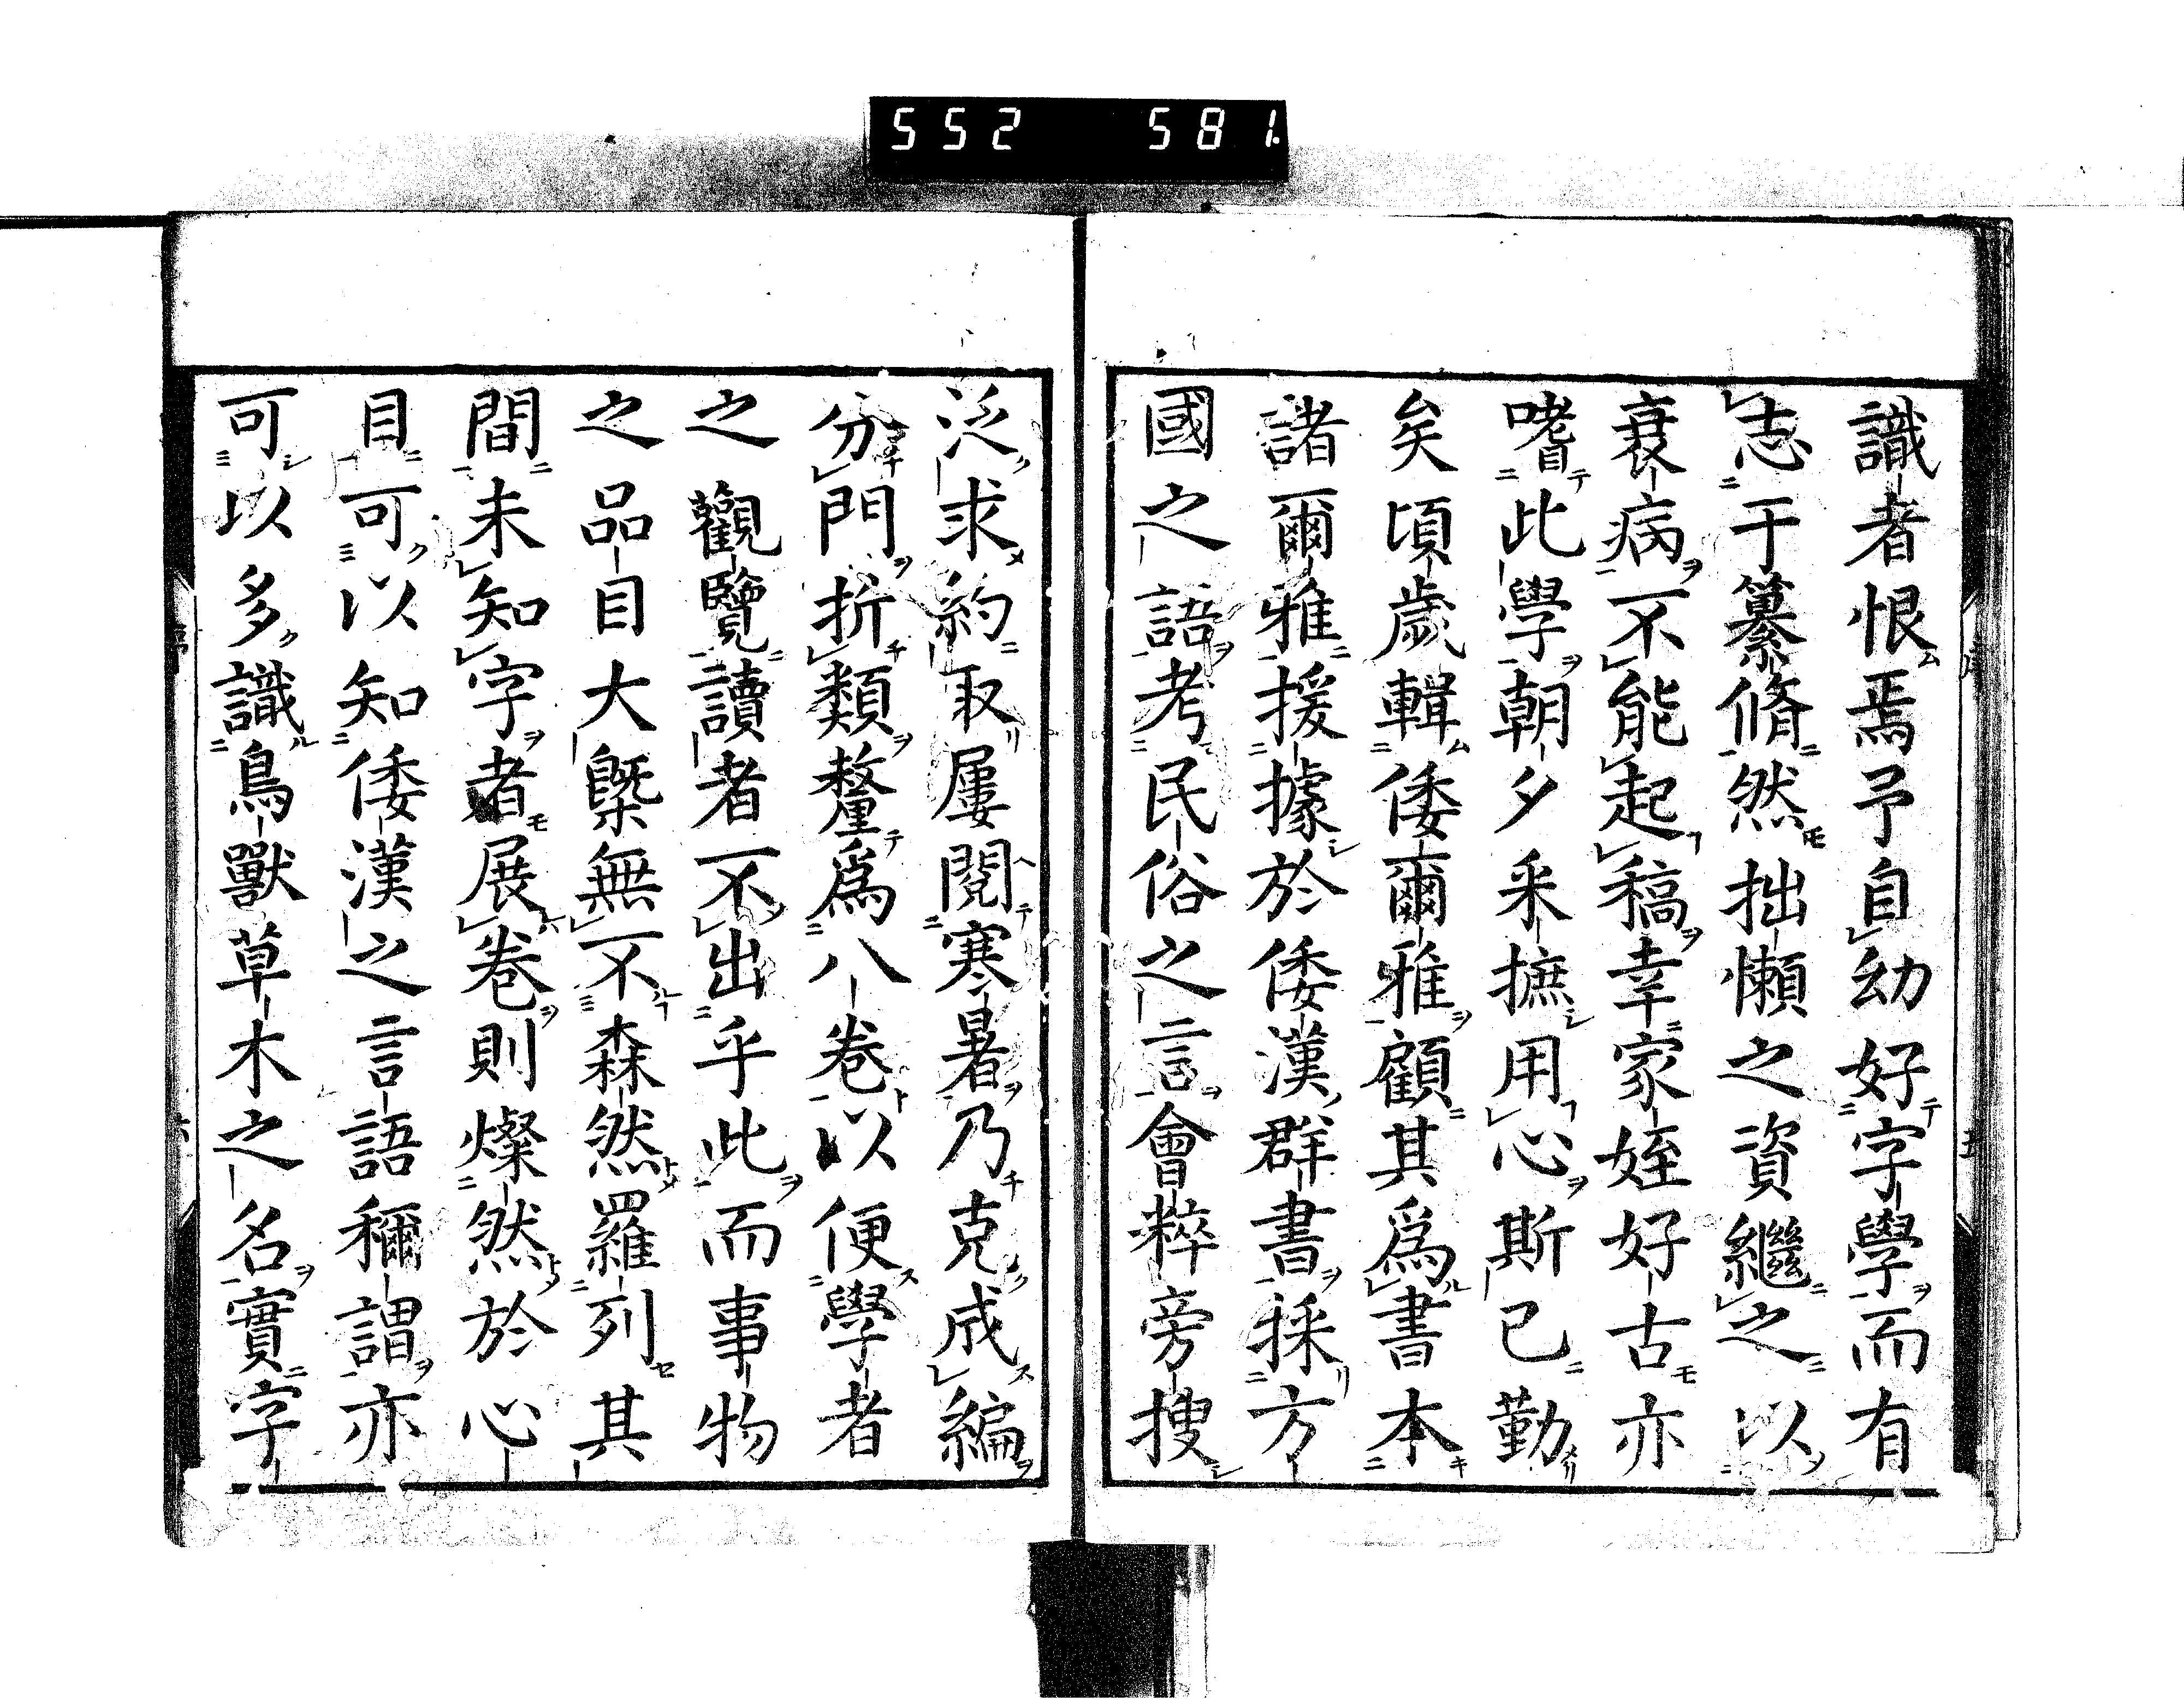 552 581
識者恨焉予自幼好字學而有
志于纂脩然拙懶之資繼之以
衰病不能起稿幸家姪好古亦
嗜此學朝夕采摭用心斯已勤
矣頃歲輯倭爾雅顧其爲書本
諸爾雅援據於倭漢群書採方
國之語考民俗之言會粹旁搜
泛求約取屢閱寒暑乃克成編
分門折類釐爲八卷以便學者
之觀覽讀者不出乎此而事物
之品目大槩無不森然羅列其
間未知字者展卷則燦然於心
目可以知倭漢之言語稱謂亦
可以多識鳥獸草木之名實字